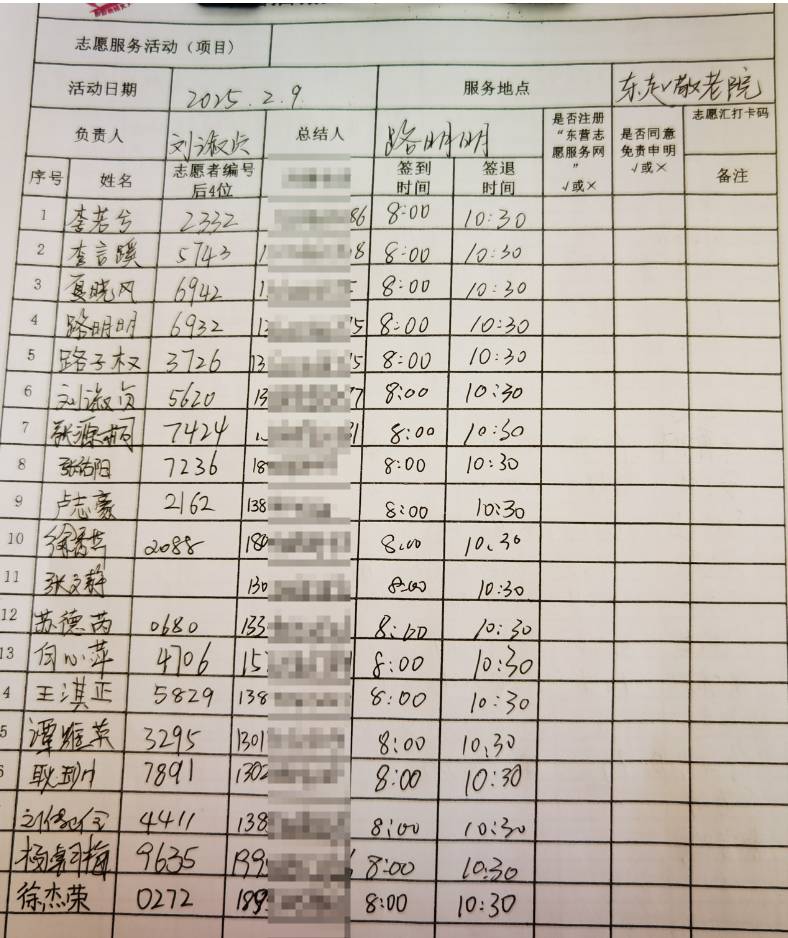 志愿服务活动（项目）
活动日期 2025.2.9 服务地点 敬老院
负责人 刘淑贞 总结人 路明明 是否注册“东营志愿服务网” √或× 是否同意免责申明 √或× 志愿汇打卡码
序号 姓名 志愿者编号后4位 签到时间 签退时间 备注
1 李若兮 2332 86 8:00 10:30
2 李言蹊 5743 1 8 8:00 10:30
3 夏晓风 6942 1 8:00 10:30
4 路明明 6932 13 5 8:00 10:30
5 路子权 3726 13 5 8:00 10:30
6 刘淑贞 5620 13 7 8:00 10:30
7 7424 1 8:00 10:30
8 7236 18 8:00 10:30
9 卢志豪 2162 138 8:00 10:30
10 2088 180 8:00 10:30
11 张文静 130 8:00 10:30
12 苏德芮 0680 133 8:00 10:30
13 4706 15 8:00 10:30
4 王淇正 5829 138 8:00 10:30
5 3295 1301 8:00 10:30
7891 1302 8:00 10:30
4411 138 8:00 10:30
9635 199 8:00 10:30
徐杰荣 0272 189 8:00 10:30